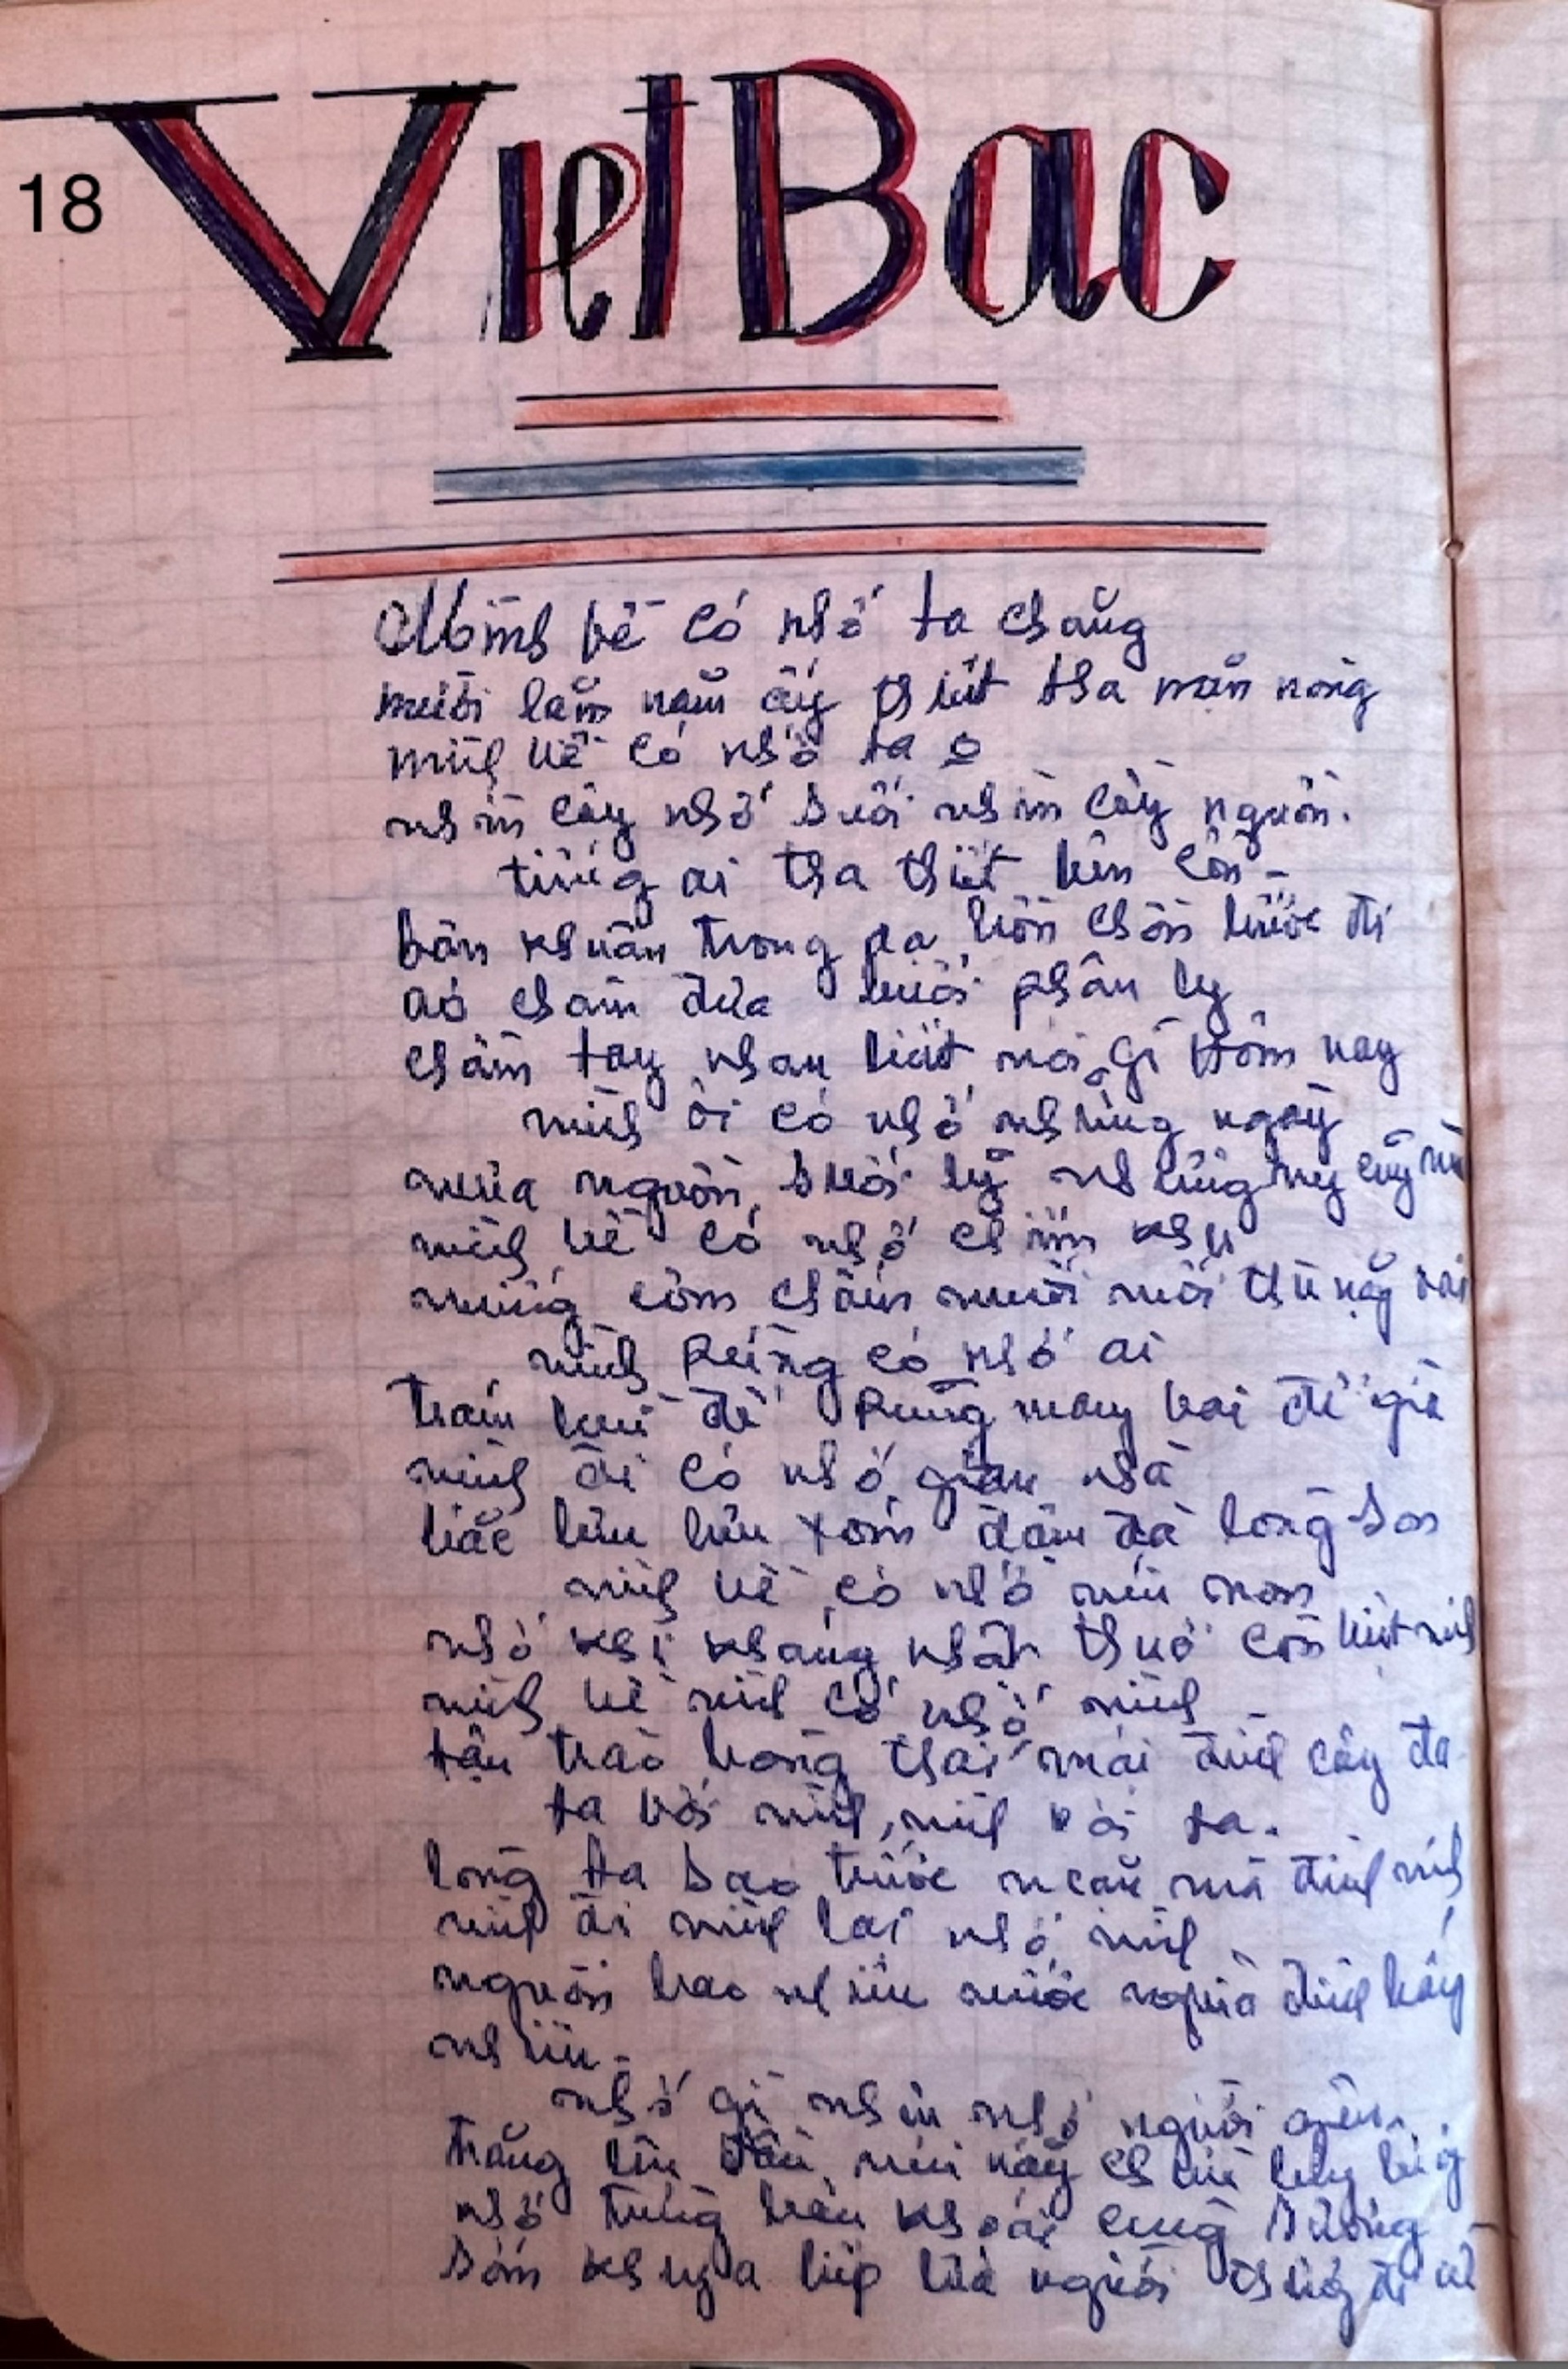 18
Việt Bắc
Mình về có nhớ ta chăng
mười lăm năm ấy thiết tha mặn nồng
mình về có nhớ ta o
nhìn cây nhớ suối nhìn cây nguồn.
tiếng ai tha thiết bên cồn -
bân khuân trong dạ bồn chồn bước đi
áo chàm đưa buổi phân ly
cầm tay nhau biết nói gì hôm nay
mình đi có nhớ những ngày
mưa nguồn suối lũ những mây cùng mù
mình về có nhớ chiến khu
miếng cơm chấm muối mối thù nặng vai
mình rừng có nhớ ai
trám bùi để rụng măng mai để già
mình đi có nhớ nhà
hắc hiu hiu xóm đậm đà lòng son
mình về có nhớ núi non
nhớ khi kháng nhật thuở còn việt minh
mình về mình có nhớ mình
tân trào hồng thái mái đình cây đa
ta với mình, mình với ta.
lòng ta sao trước mặn mà đinh ninh
mình đi mình lại nhớ mình
nguồn bao nhiêu nước nghĩa tình bấy
nhiêu -
nhớ gì như nhớ người yêu.
trăng lên đầu núi nắng chiều lưng
nhớ từng bản khói cùng sương
sớm khuya bếp lửa người thương đi về